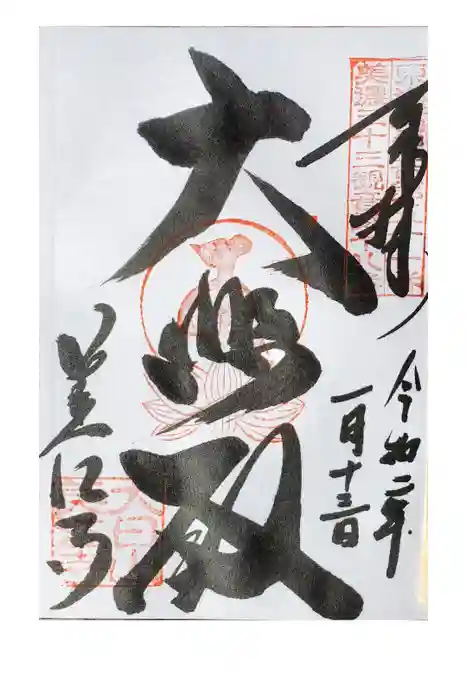 奉拝
美濃三十三観音
令和二年
一月十三日
大悲殿
美江寺
大日山